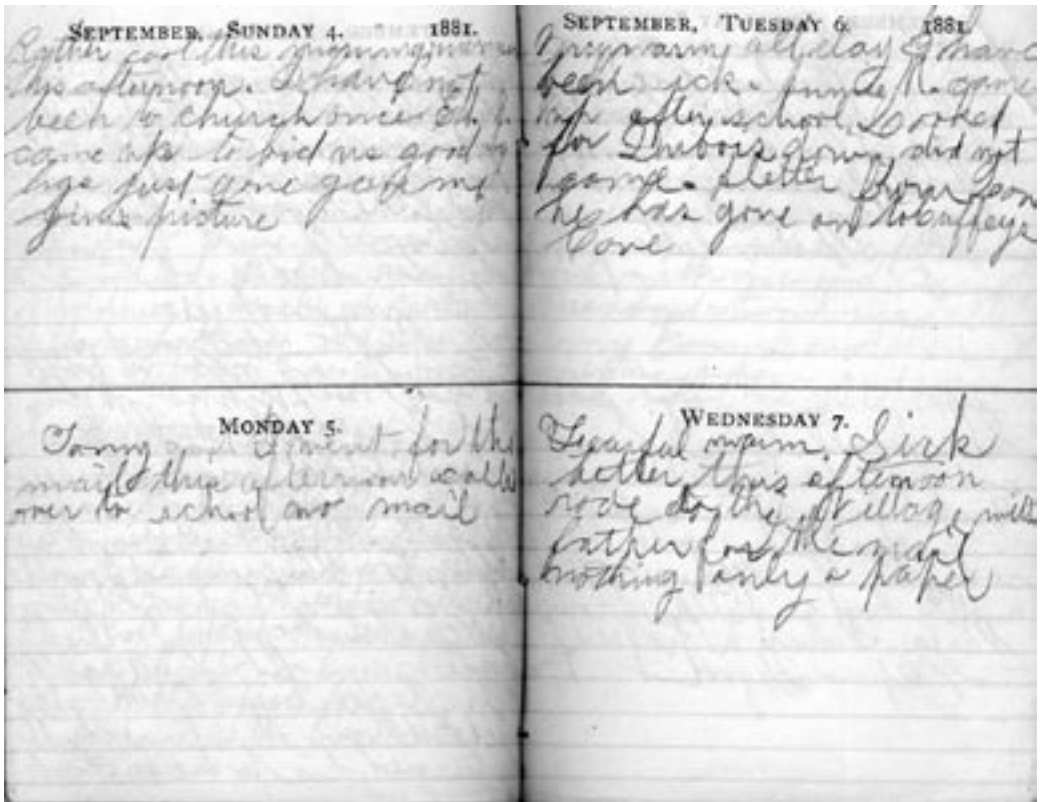 SEPTEMBER, SUNDAY 4. 1881.
Rather cool this morning, warm
this afternoon. I have not
been to church once
came up to bid us good by
has just gone gave me
picture
MONDAY 5.
I went for the
mail this afternoon called
over to school no mail
SEPTEMBER, TUESDAY 6. 1881.
Very warm all day I have
been sick. came
up after school, Looked
for down, did not
come. A letter from
he has gone on to
Cove
WEDNESDAY 7.
Fearful warm. Sick
better this afternoon
rode to the Village with
father for the mail
nothing only a paper